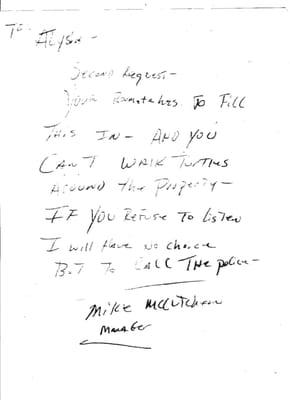 To:
Alysa -
Second Request -
Your                to Fill
This In - AND YOU
CAN'T WALK Turtles
Around the Property -
IF YOU Refuse To listen
I will Have no choice
But To CALL THE police -
Mike McCutcheon
Manager